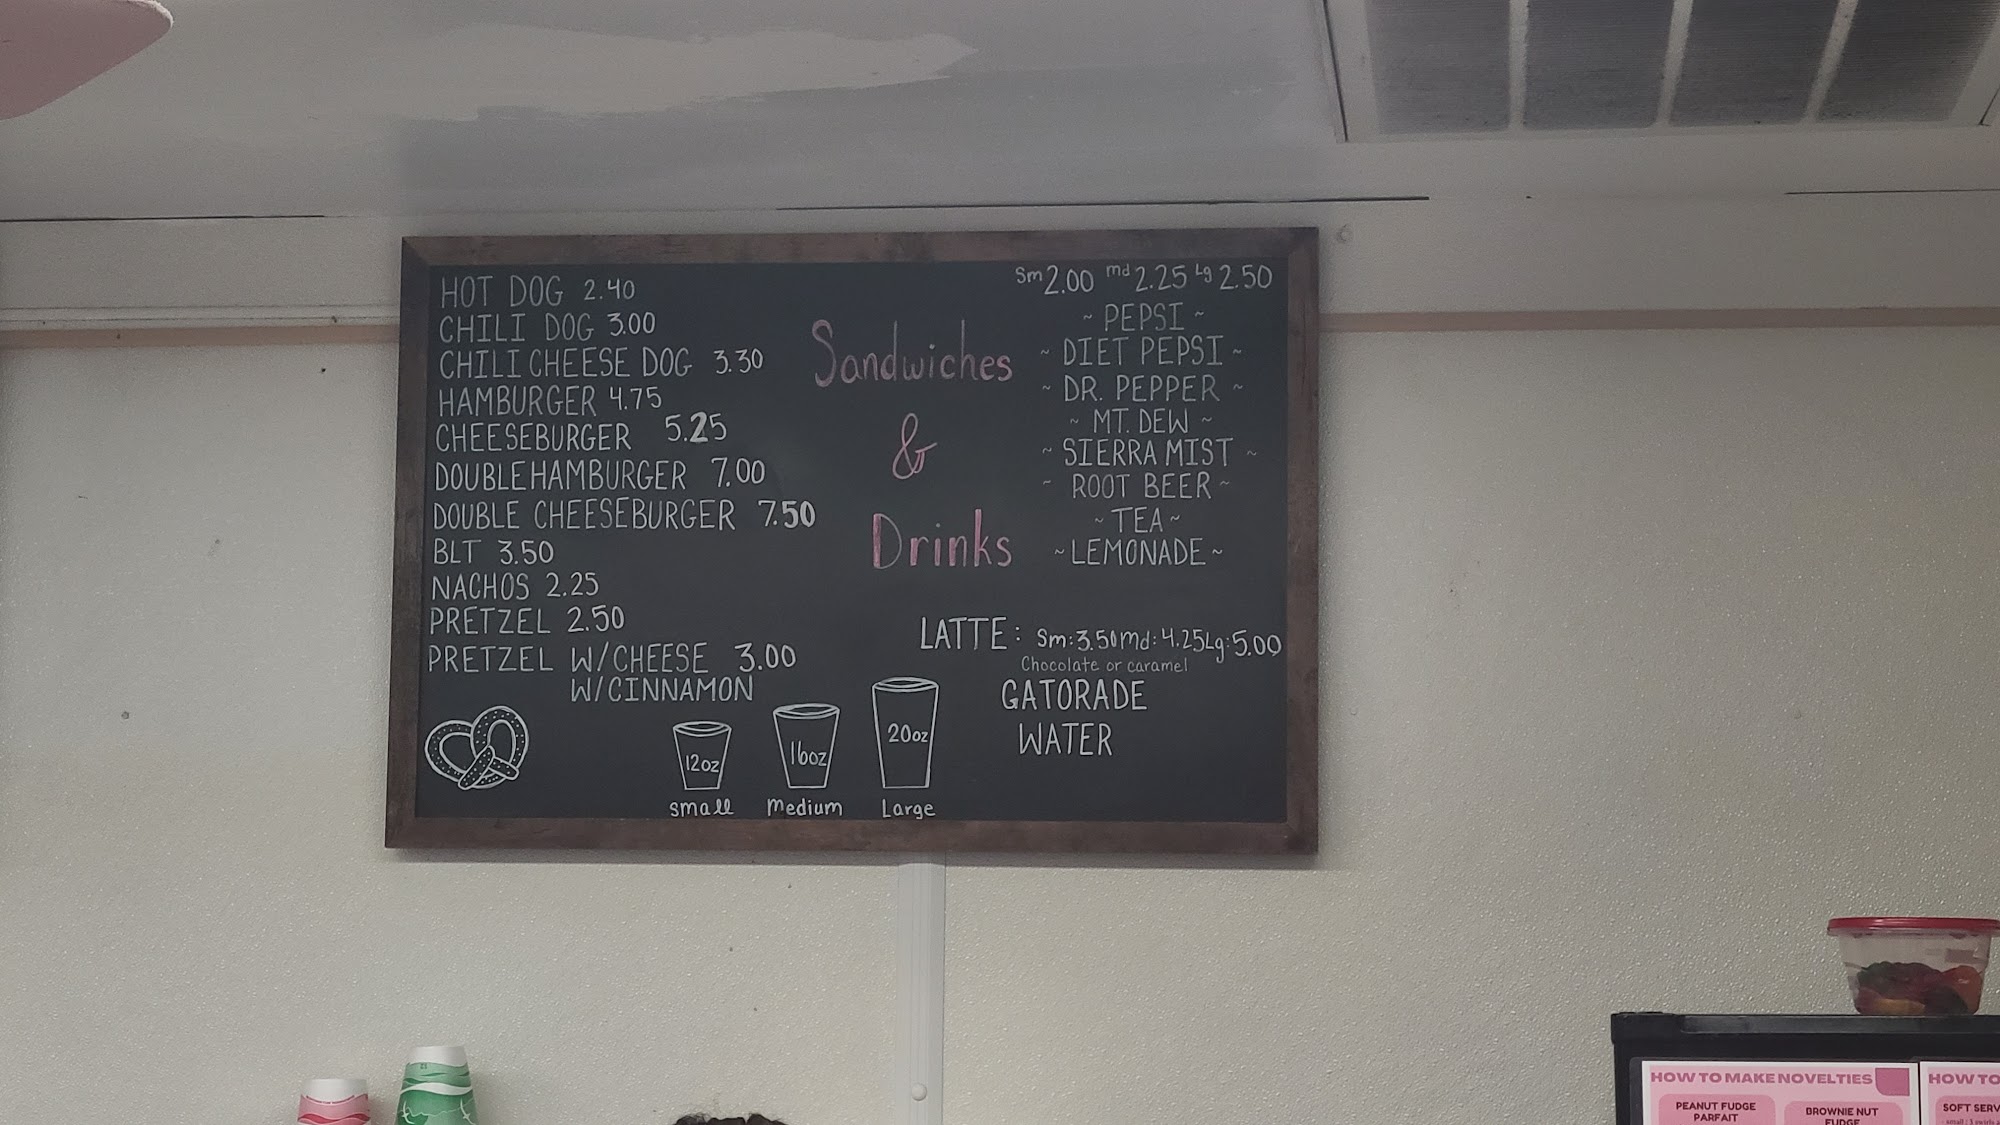 HOT DOG 2.40
CHILI DOG 3.00
CHILI CHEESE DOG 3.30
HAMBURGER 4.75
CHEESEBURGER 5.25
DOUBLE HAMBURGER 7.00
DOUBLE CHEESEBURGER 7.50
BLT 3.50
NACHOS 2.25
PRETZEL 2.50
PRETZEL W/CHEESE 3.00
W/CINNAMON
Sandwiches
&
Drinks
Sm 2.00 md 2.25 Lg 2.50
~ PEPSI ~
~ DIET PEPSI ~
~ DR. PEPPER ~
~ MT. DEW ~
~ SIERRA MIST ~
~ ROOT BEER ~
~ TEA ~
~ LEMONADE ~
LATTE: Sm: 3.50 md: 4.25 Lg: 5.00
Chocolate or caramel
GATORADE
WATER
12oz
small
16oz
Medium
20oz
Large
HOW TO MAKE NOVELTIES
PEANUT FUDGE
PARFAIT
BROWNIE NUT
FUDGE
HOW TO
SOFT SERV